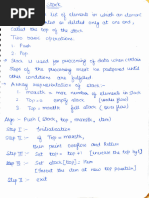 Stack
list of elements in which an element
or deleted only at one end,
called the top of the stack.
Two main operations
→ Push
→ Pop
→ Stack is used for processing of data when certain
steps of the processing must be postponed until
other conditions are fulfilled
→ Array representation of stack
→ maxstk → max number of elements in stack
→ top = 0 empty stack
→ top = maxstk full stack (overflow)
Algo - Push (stack, top, maxstk, item)
Step I :- Initialization
Step II :- if top = maxstk,
and Return
Step III :- Set top = top + 1 [increase the top by 1]
Step IV :- Set stack [top] = item
[insert the item at new top position]
Step V :- exit